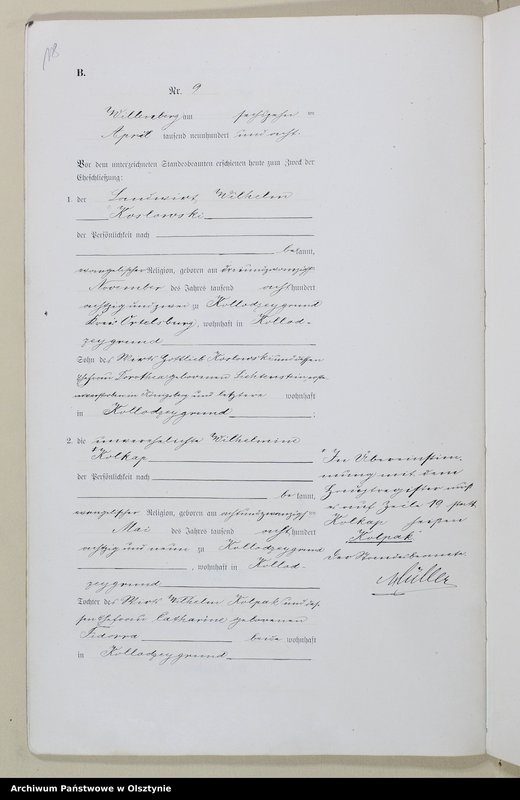 118
B.
Nr. 9
Willenberg am sechszehn ten
April tausend neunhundert und acht.
Vor dem unterzeichneten Standesbeamten erschienen heute zum Zweck der
Eheschließung:
1. der Landwirt Wilhelm
Koslowski
der Persönlichkeit nach
be kannt,
evangelischer Religion, geboren am dreiundzwanzigsten
November des Jahres tausend acht hundert
achtzig und zwei zu Kollodzeygrund
Kreis Ortelsburg, wohnhaft in Kollod-
zeygrund
Sohn des Wirts Gottlieb Koslowski und dessen
Ehefrau Dorothea geborenen Lichtenstein
Königsberg und letztere wohnhaft
in Kollodzeygrund
2. die unverehelichte Wilhelmine
Kolkap
der Persönlichkeit nach
be kannt,
evangelischer Religion, geboren am achtundzwanzigsten
Mai des Jahres tausend acht hundert
achtzig und neun zu Kollodzeygrund
, wohnhaft in Kollod-
zeygrund
Tochter des Wirts Wilhelm Kolpak und des-
sen Ehefrau Catharine geborenen
Fidorra beide wohnhaft
in Kollodzeygrund
In Übereinstim-
mung mit dem
Hauptregister muß
es auf Zeile 19 statt
Kolkap heißen
Kolpak
Der Standesbeamte.
Müller
Archiwum Państwowe w Olsztynie